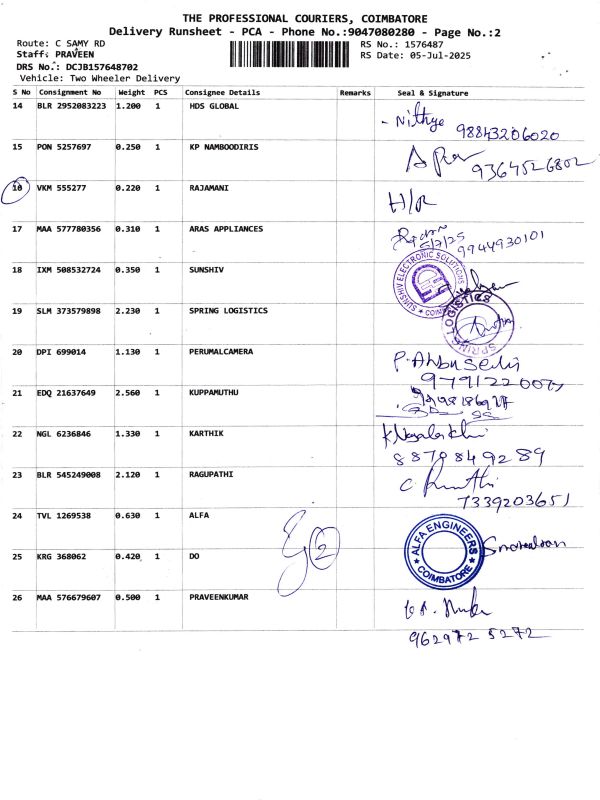 THE PROFESSIONAL COURIERS, COIMBATORE
Delivery Runsheet - PCA - Phone No.:9047080280 - Page No.:2
Route: C SAMY RD RS No.: 1576487
Staff: PRAVEEN RS Date: 05-Jul-2025
DRS No.: DCJB157648702
Vehicle: Two Wheeler Delivery
S No Consignment No Weight PCS Consignee Details Remarks Seal & Signature
14 BLR 2952083223 1.200 1 HDS GLOBAL
- Nithya 98843206020
15 PON 5257697 0.250 1 KP NAMBOODIRIS
9364526802
16 VKM 555277 0.220 1 RAJAMANI H/R
17 MAA 577780356 0.310 1 ARAS APPLIANCES
5/7/25 9944930101
18 IXM 508532724 0.350 1 SUNSHIV
SUNSHIV ELECTRONIC SOLUTIONS
19 SLM 373579898 2.230 1 SPRING LOGISTICS
SPRING LOGISTICS
20 DPI 699014 1.130 1 PERUMALCAMERA
21 EDQ 21637649 2.560 1 KUPPAMUTHU
22 NGL 6236846 1.330 1 KARTHIK
8870849289
23 BLR 545249008 2.120 1 RAGUPATHI
7339203651
24 TVL 1269538 0.630 1 ALFA
ALFA ENGINEERS
COIMBATORE
2
25 KRG 368062 0.420 1 DO
26 MAA 576679607 0.500 1 PRAVEENKUMAR
9629725272